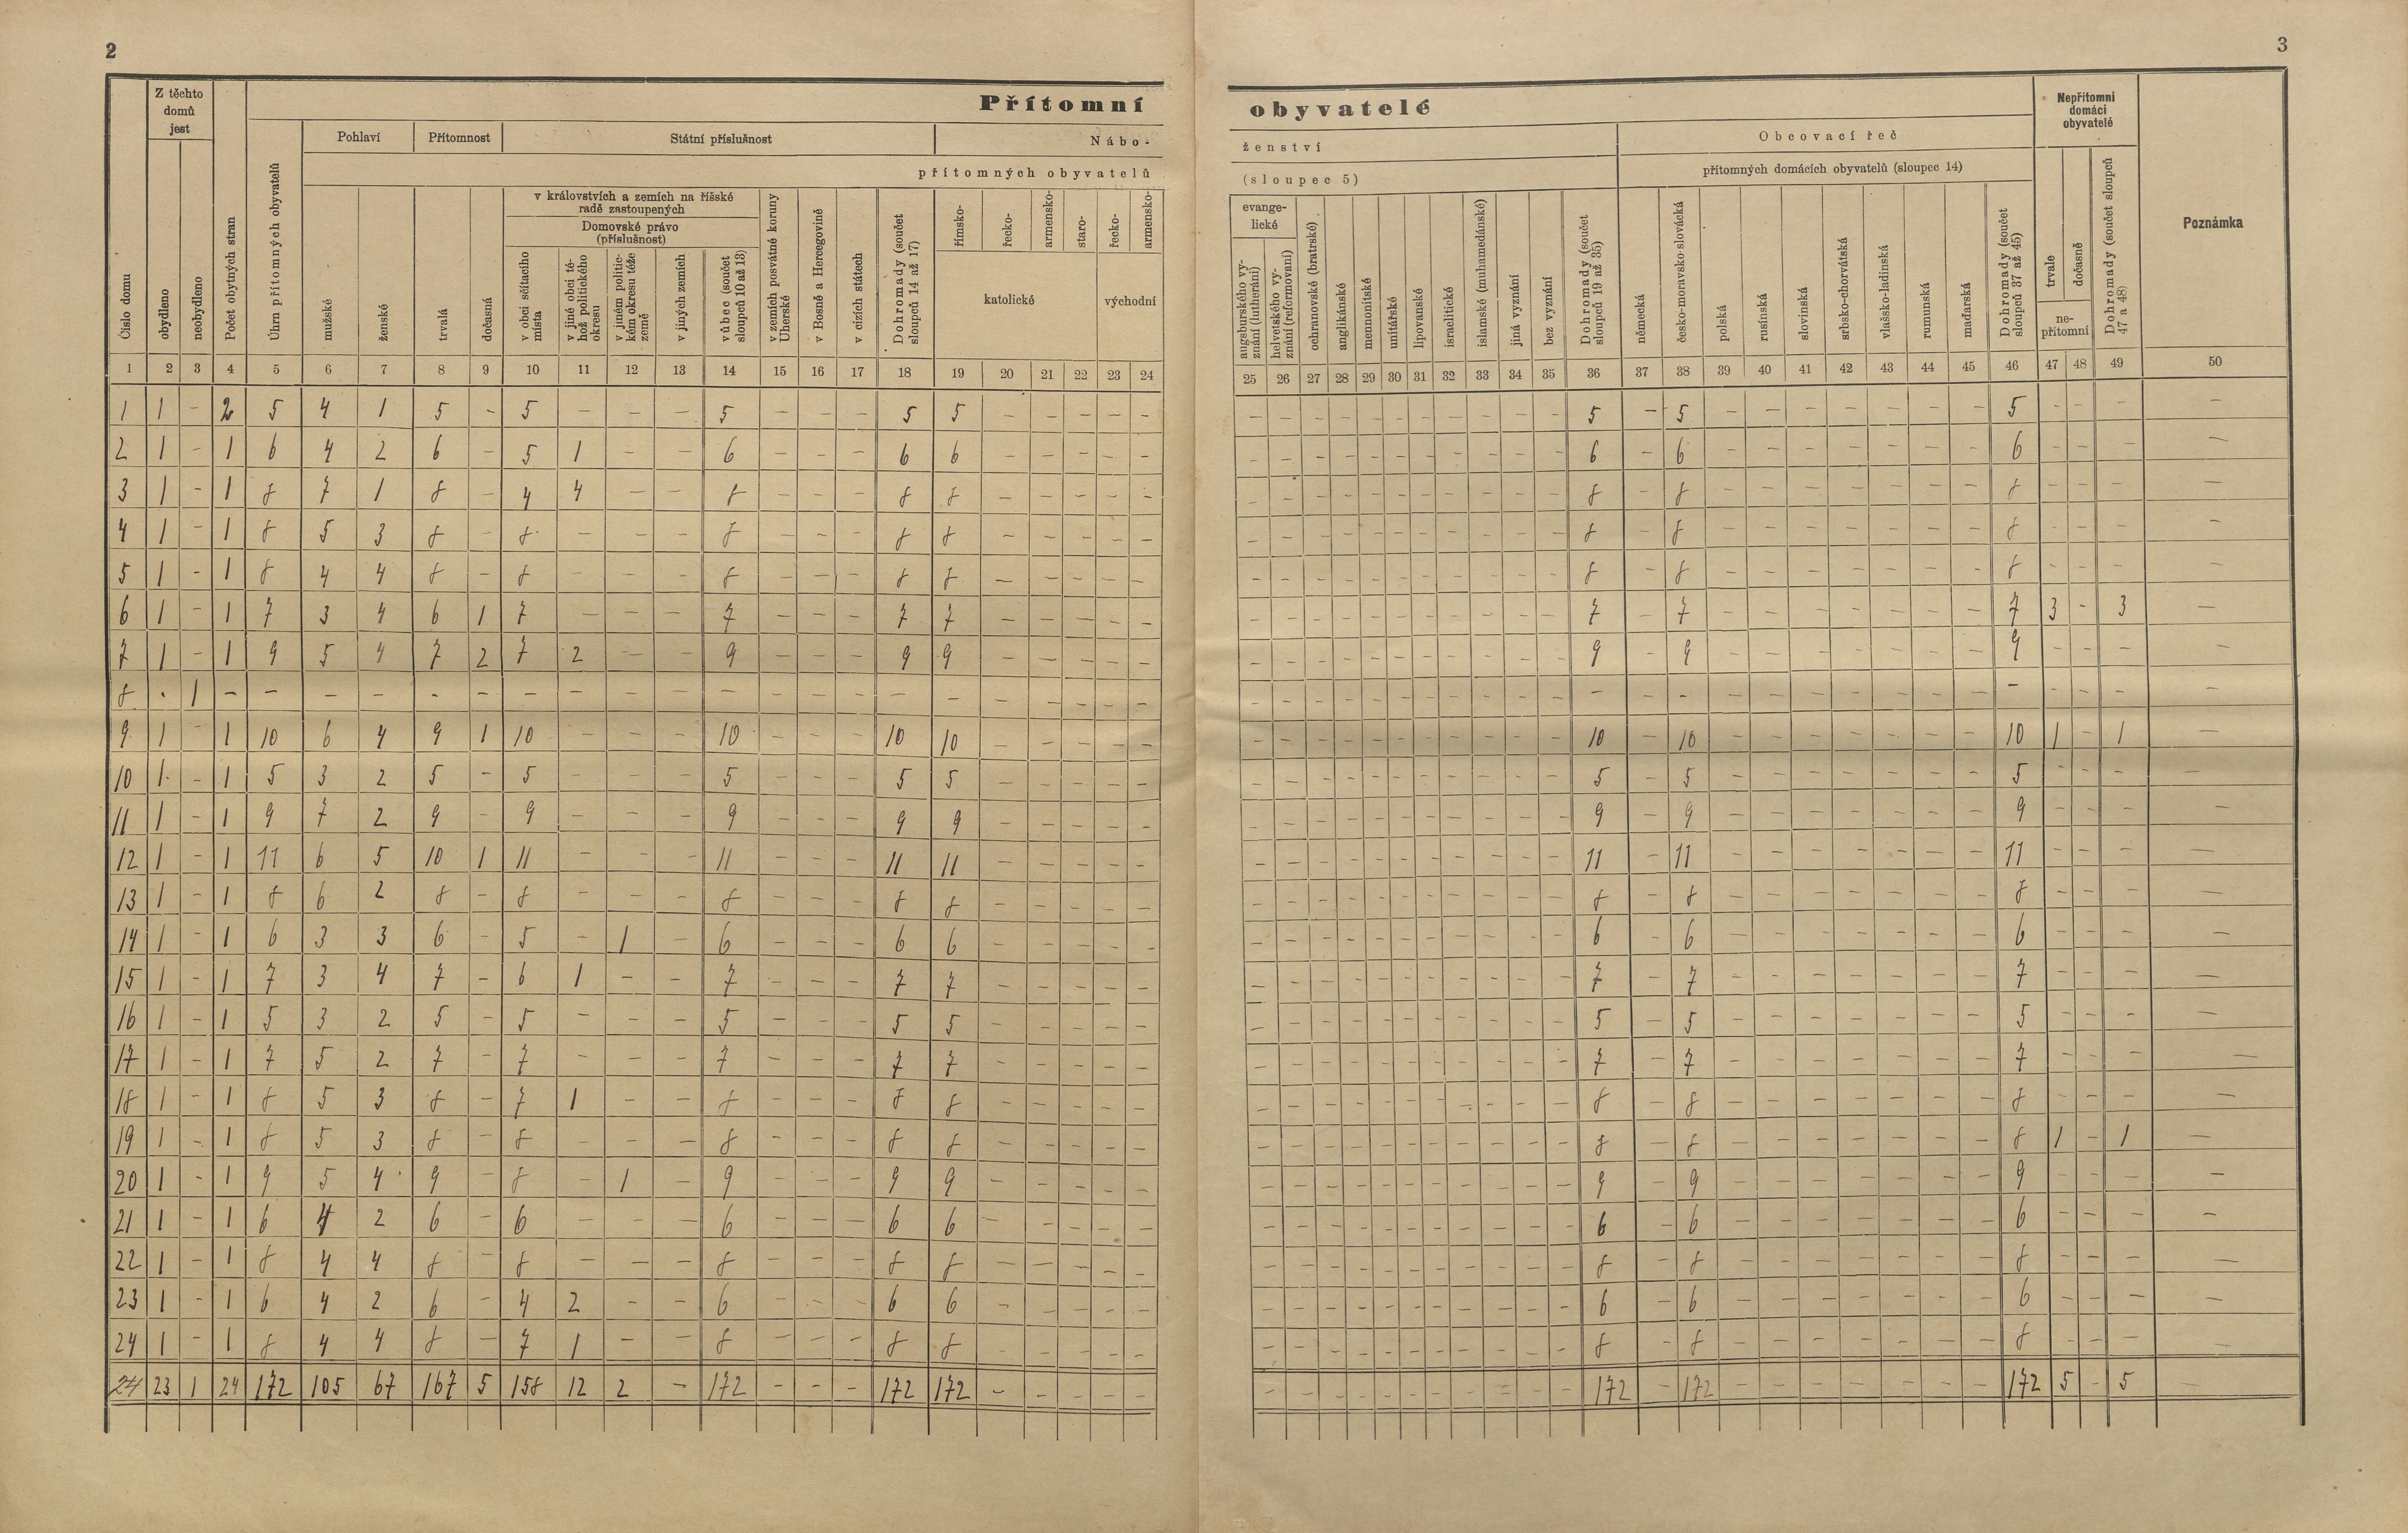 2
3
Přítomní obyvatelé
Číslo domu
Z těchto domů jest
obydleno
neobydleno
Počet obytných stran
Úhrn přítomných obyvatelů
Pohlaví
Přítomnost
Státní příslušnost
Nábo-
ženství
přítomných obyvatelů
(sloupec 5)
mužské
ženské
trvalá
dočasná
v královstvích a zemích na říšské radě zastoupených
Domovské právo (příslušnost)
v obci sčítacího místa
v jiné obci té-hož politického okresu
v jiném politic-kém okresu téže země
v jiných zemích
vůbec (součet sloupců 10 až 13)
v zemích posvátné koruny Uherské
v Bosně a Hercegovině
v cizích státech
Dohromady (součet sloupců 14 až 17)
římsko-
řecko-
armensko-
staro-
řecko-
armensko-
katolické
východní
evange-lické
augsburského vy-znání (lutheráni)
helvetského vy-znání (reformovaní)
ochranovské (bratrské)
anglikánské
mennonitské
unitářské
lipovanské
israelitické
islamské (muhamedánské)
jiná vyznání
bez vyznání
Dohromady (součet sloupců 19 až 35)
Obcovací řeč
přítomných domácích obyvatelů (sloupec 14)
německá
česko-moravsko-slovácká
polská
rusínská
slovinská
srbsko-chorvátská
vlašsko-ladinská
rumunská
maďarská
Dohromady (součet sloupců 37 až 45)
Nepřítomní domácí obyvatelé
trvale
dočasně
ne-přítomni
Dohromady (součet sloupců 47 a 48)
Poznámka
1 2 3 4 5 6 7 8 9 10 11 12 13 14 15 16 17 18 19 20 21 22 23 24 25 26 27 28 29 30 31 32 33 34 35 36 37 38 39 40 41 42 43 44 45 46 47 48 49 50
1 1 - 2 5 4 1 5 - 5 - - - 5 - - - 5 5 - - - - - - - - - - - - - - - - 5 - 5 - - - - - - - 5 - - - -
2 1 - 1 6 4 2 6 - 5 1 - - 6 - - - 6 6 - - - - - - - - - - - - - - - - 6 - 6 - - - - - - - 6 - - - -
3 1 - 1 8 7 1 8 - 4 4 - - 8 - - - 8 8 - - - - - - - - - - - - - - - - 8 - 8 - - - - - - - 8 - - - -
4 1 - 1 8 5 3 8 - 8 - - - 8 - - - 8 8 - - - - - - - - - - - - - - - - 8 - 8 - - - - - - - 8 - - - -
5 1 - 1 8 4 4 8 - 8 - - - 8 - - - 8 8 - - - - - - - - - - - - - - - - 8 - 8 - - - - - - - 8 - - - -
6 1 - 1 7 3 4 6 1 7 - - - 7 - - - 7 7 - - - - - - - - - - - - - - - - 7 - 7 - - - - - - - 7 3 - 3 -
7 1 - 1 9 5 4 7 2 7 2 - - 9 - - - 9 9 - - - - - - - - - - - - - - - - 9 - 9 - - - - - - - 9 - - - -
8 . 1 - - - - - - - - - - - - - - - - - - - - - - - - - - - - - - - - - - - - - - - - - - - - - - -
9 1 - 1 10 6 4 9 1 10 - - - 10 - - - 10 10 - - - - - - - - - - - - - - - - 10 - 10 - - - - - - - 10 1 - 1 -
10 1 - 1 5 3 2 5 - 5 - - - 5 - - - 5 5 - - - - - - - - - - - - - - - - 5 - 5 - - - - - - - 5 - - - -
11 1 - 1 9 7 2 9 - 9 - - - 9 - - - 9 9 - - - - - - - - - - - - - - - - 9 - 9 - - - - - - - 9 - - - -
12 1 - 1 11 6 5 10 1 11 - - - 11 - - - 11 11 - - - - - - - - - - - - - - - - 11 - 11 - - - - - - - 11 - - - -
13 1 - 1 8 6 2 8 - 8 - - - 8 - - - 8 8 - - - - - - - - - - - - - - - - 8 - 8 - - - - - - - 8 - - - -
14 1 - 1 6 3 3 6 - 5 - 1 - 6 - - - 6 6 - - - - - - - - - - - - - - - - 6 - 6 - - - - - - - 6 - - - -
15 1 - 1 7 3 4 7 - 6 1 - - 7 - - - 7 7 - - - - - - - - - - - - - - - - 7 - 7 - - - - - - - 7 - - - -
16 1 - 1 5 3 2 5 - 5 - - - 5 - - - 5 5 - - - - - - - - - - - - - - - - 5 - 5 - - - - - - - 5 - - - -
17 1 - 1 7 5 2 7 - 7 - - - 7 - - - 7 7 - - - - - - - - - - - - - - - - 7 - 7 - - - - - - - 7 - - - -
18 1 - 1 8 5 3 8 - 7 1 - - 8 - - - 8 8 - - - - - - - - - - - - - - - - 8 - 8 - - - - - - - 8 - - - -
19 1 - 1 8 5 3 8 - 8 - - - 8 - - - 8 8 - - - - - - - - - - - - - - - - 8 - 8 - - - - - - - 8 1 - 1 -
20 1 - 1 9 5 4 9 - 8 - 1 - 9 - - - 9 9 - - - - - - - - - - - - - - - - 9 - 9 - - - - - - - 9 - - - -
21 1 - 1 6 4 2 6 - 6 - - - 6 - - - 6 6 - - - - - - - - - - - - - - - - 6 - 6 - - - - - - - 6 - - - -
22 1 - 1 8 4 4 8 - 8 - - - 8 - - - 8 8 - - - - - - - - - - - - - - - - 8 - 8 - - - - - - - 8 - - - -
23 1 - 1 6 4 2 6 - 4 2 - - 6 - - - 6 6 - - - - - - - - - - - - - - - - 6 - 6 - - - - - - - 6 - - - -
24 1 - 1 8 4 4 8 - 7 1 - - 8 - - - 8 8 - - - - - - - - - - - - - - - - 8 - 8 - - - - - - - 8 - - - -
24 23 1 24 172 105 67 167 5 158 12 2 - 172 - - - 172 172 - - - - - - - - - - - - - - - - 172 - 172 - - - - - - - 172 5 - 5 -